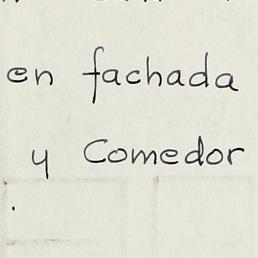 en fachada
y Comedor
.